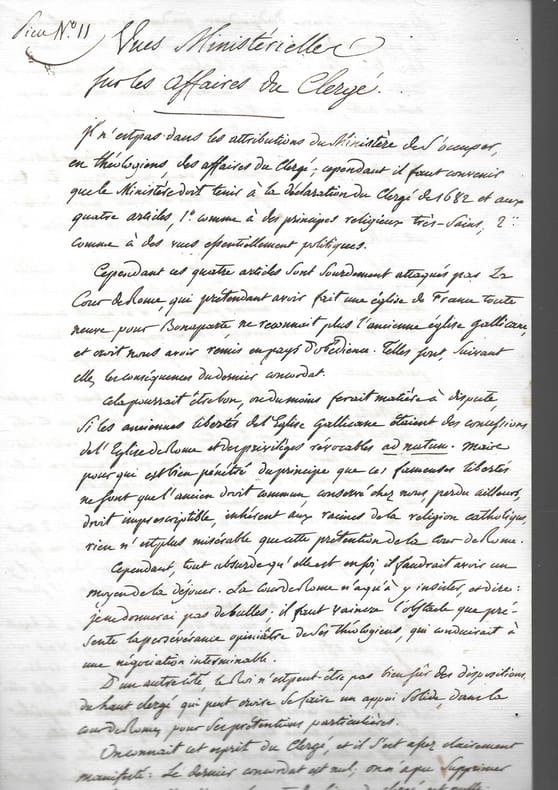 Piece N.º 11
Vues Ministérielles
sur les affaires du Clergé.
Il n'est pas dans les attributions du Ministère de s'occuper,
en théologiens, des affaires du Clergé; cependant il faut convenir
que le Ministère doit tenir à la déclaration du Clergé de 1682 et aux
quatre articles, 1.º comme à des principes religieux très-sains, 2.º
comme à des vues essentiellement politiques.
Cependant ces quatre articles sont sourdement attaqués par la
Cour de Rome, qui prétendant avoir fait une église de France toute
neuve pour Bonaparte, ne reconnait plus l'ancienne église gallicane,
et croit nous avoir remis en pays d'obédience. Telles sont, suivant
elle, les conséquences du dernier concordat.
Cela pourrait être bon, ou du moins ferait matière à dispute,
si les anciennes libertés de l'Eglise Gallicane étaient des concessions
de l'Eglise de Rome et des privilèges révocables ad nutum. Mais
pour qui est bien pénétré du principe que ces fameuses libertés
ne sont que l'ancien droit commun conservé chez nous, perdu ailleurs,
droit imprescriptible, inhérent aux racines de la religion catholique,
rien n'est plus misérable que cette prétention de la Cour de Rome.
Cependant, tout absurde qu'elle est en soi, il faudrait avoir un
moyen de la déjouer. La Cour de Rome n'a qu'à y insister, et dire:
je ne donnerai pas de bulles; il faut vaincre l'obstacle que pré-
sente la persévérance opiniâtre de ses théologiens, qui conduirait à
une négociation interminable.
D'un autre côté, le Roi n'est peut-être pas bien sûr des dispositions
du haut clergé qui peut croire se faire un appui solide, dans la
cour de Rome, pour ses prétentions particulières.
On connait cet esprit du Clergé, et il s'est assez clairement
manifesté: Le dernier concordat est nul; on n'a pu supprimer